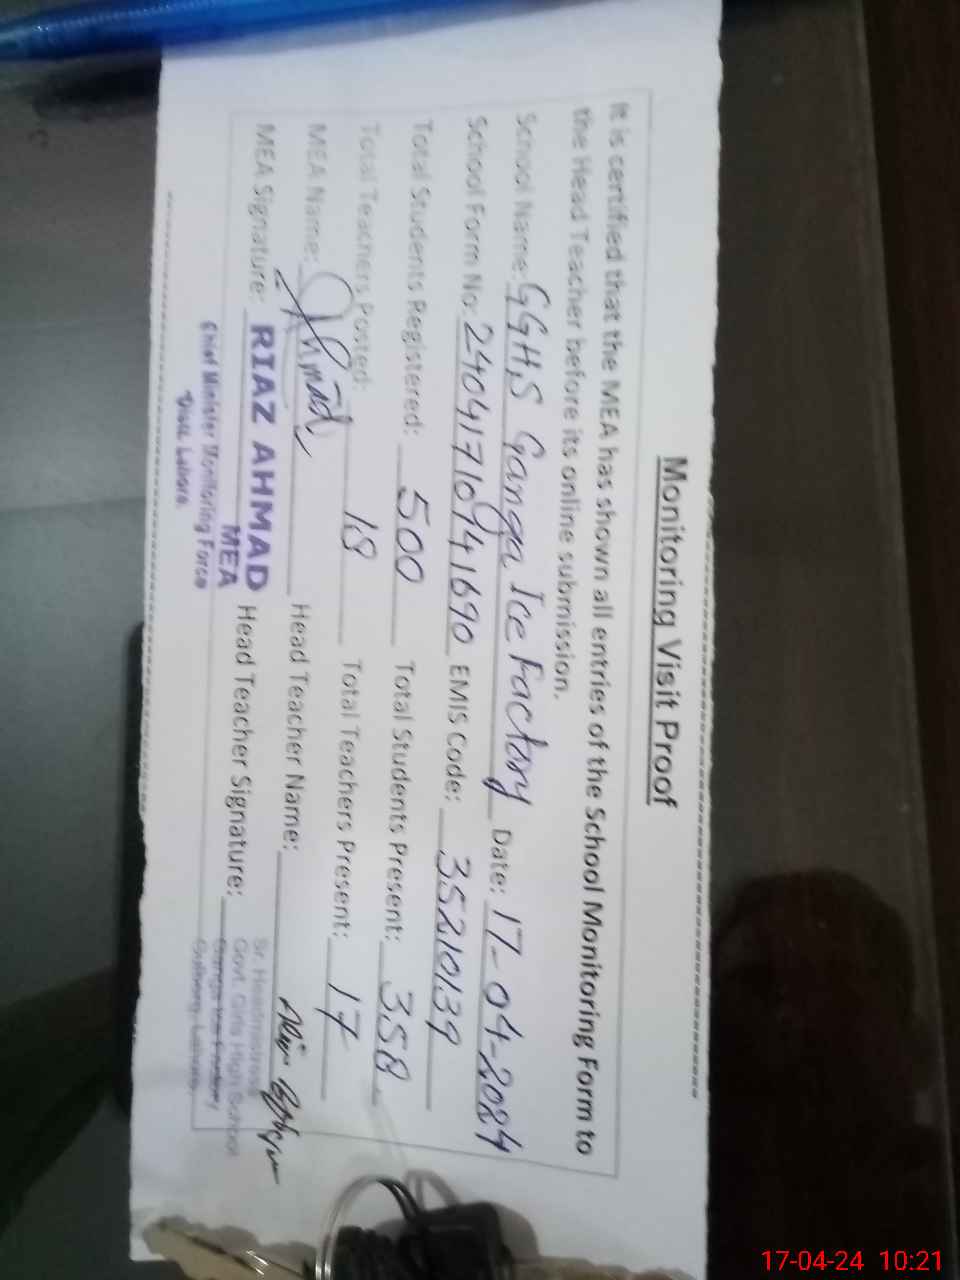 Monitoring Visit Proof
It is certified that the MEA has shown all entries of the School Monitoring Form to
the Head Teacher before its online submission.
School Name: GGHS Ganga Ice Factory Date: 17-04-2024
School Form No: 24041710941690 EMIS Code: 35210139
Total Students Registered: 500 Total Students Present: 358
Total Teachers Posted: 18 Total Teachers Present: 17
MEA Name: Ahmad Head Teacher Name:
MEA Signature: RIAZ AHMAD Head Teacher Signature:
MEA
Chief Minister Monitoring Force
Distt. Lahore
Sr. Headmistress
Govt. Girls High School
Ganga Ice Factory
Lahore
17-04-24 10:21